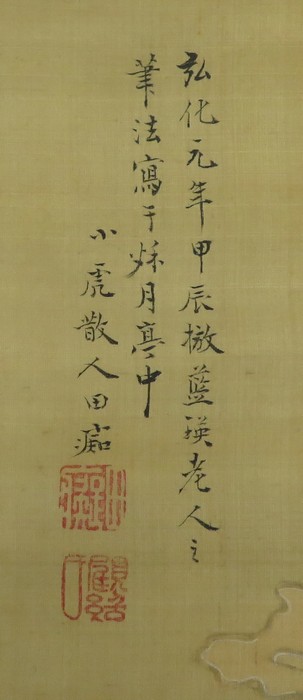 弘化元年甲辰撫藍瑛老人之
筆法寫于烁月亭中
小虎散人田痴